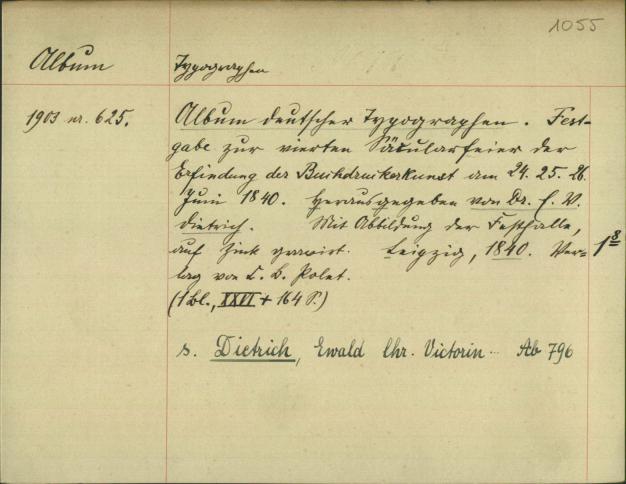 1055
Album Typographen
1903 nr. 625.
Album deutscher Typographen. Fest-
gabe zur vierten Säcularfeier der
Erfindung der Buchdruckerkunst am 24. 25. 26.
Juni 1840. Herausgegeben von Dr. E. V.
Dietrich. Mit Abbildung der Festhalle,
auf Zink gravirt. Leipzig, 1840. Ver=
lag von C. B. Polet.
(1 Bl., XXVI + 164 S.)
s. Dietrich, Ewald Chr. Victorin.. Ab 796